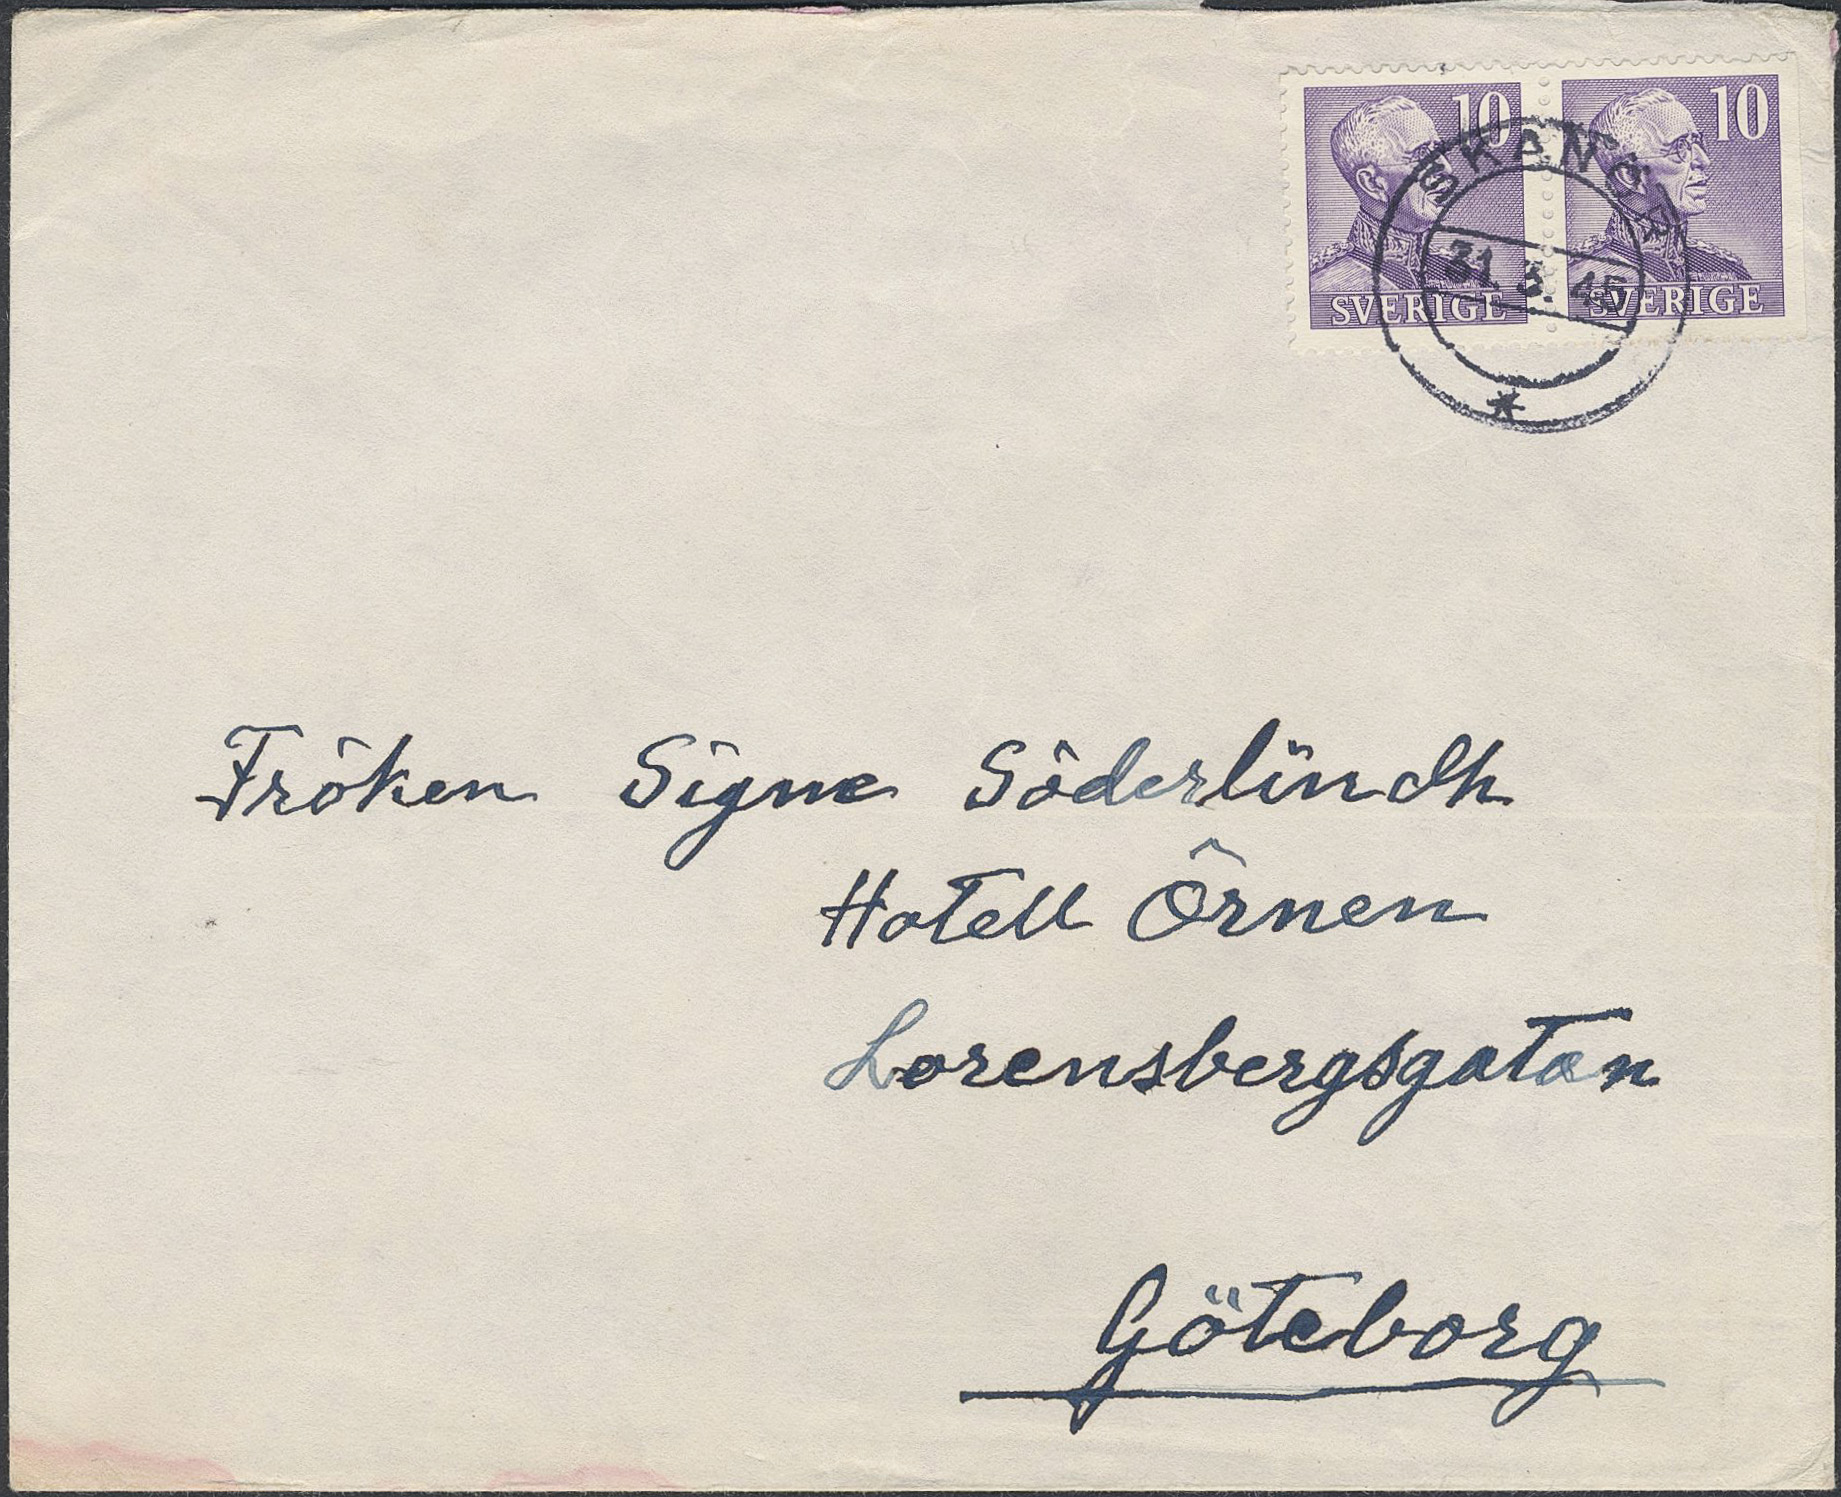 10 10
SKANÖR
31.3.45
SVERIGE SVERIGE
Fröken Signe Söderlindh
Hotell Örnen
Lorensbergsgatan
Göteborg